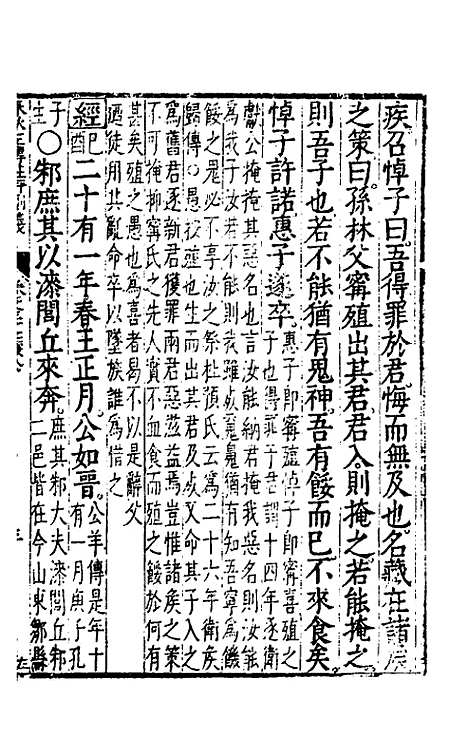 疾召悼子曰吾得罪於君悔而無及也名藏在諸侯
之策曰孫林父甯殖出其君君入則掩之若能掩之
則吾子也若不能猶有鬼神吾有餒而已不來食矣
悼子許諾惠子遂卒
惠子即甯殖悼子即甯喜殖之
子也得罪于君謂十四年逐衛
獻公掩掩其惡名也言汝能納君掩我惡名則汝能
為我子汝若不能則我雖成鬼
猶有知吾寧為饑
餒之鬼必不享汝之祭杜預氏云為二十六年衛侯
歸傳○愚
殖也生而出其君及
又命其子入之
為舊君逐新君獲罪兩君惡益甚焉豈惟諸侯之策
不可掩抑甯氏之先人實不血食而殖之餒於何有
甚矣殖之愚也為喜者曷不以是辭父
迺徒用其亂命卒以墜族誰為信之
經
己酉
二十有一年春王正月公如晉
公羊傳是年十
有一月庚子孔
子
生
○邾庶其以漆閭丘來奔
庶其邾大夫漆閭丘邾
二邑皆在今山東鄒縣